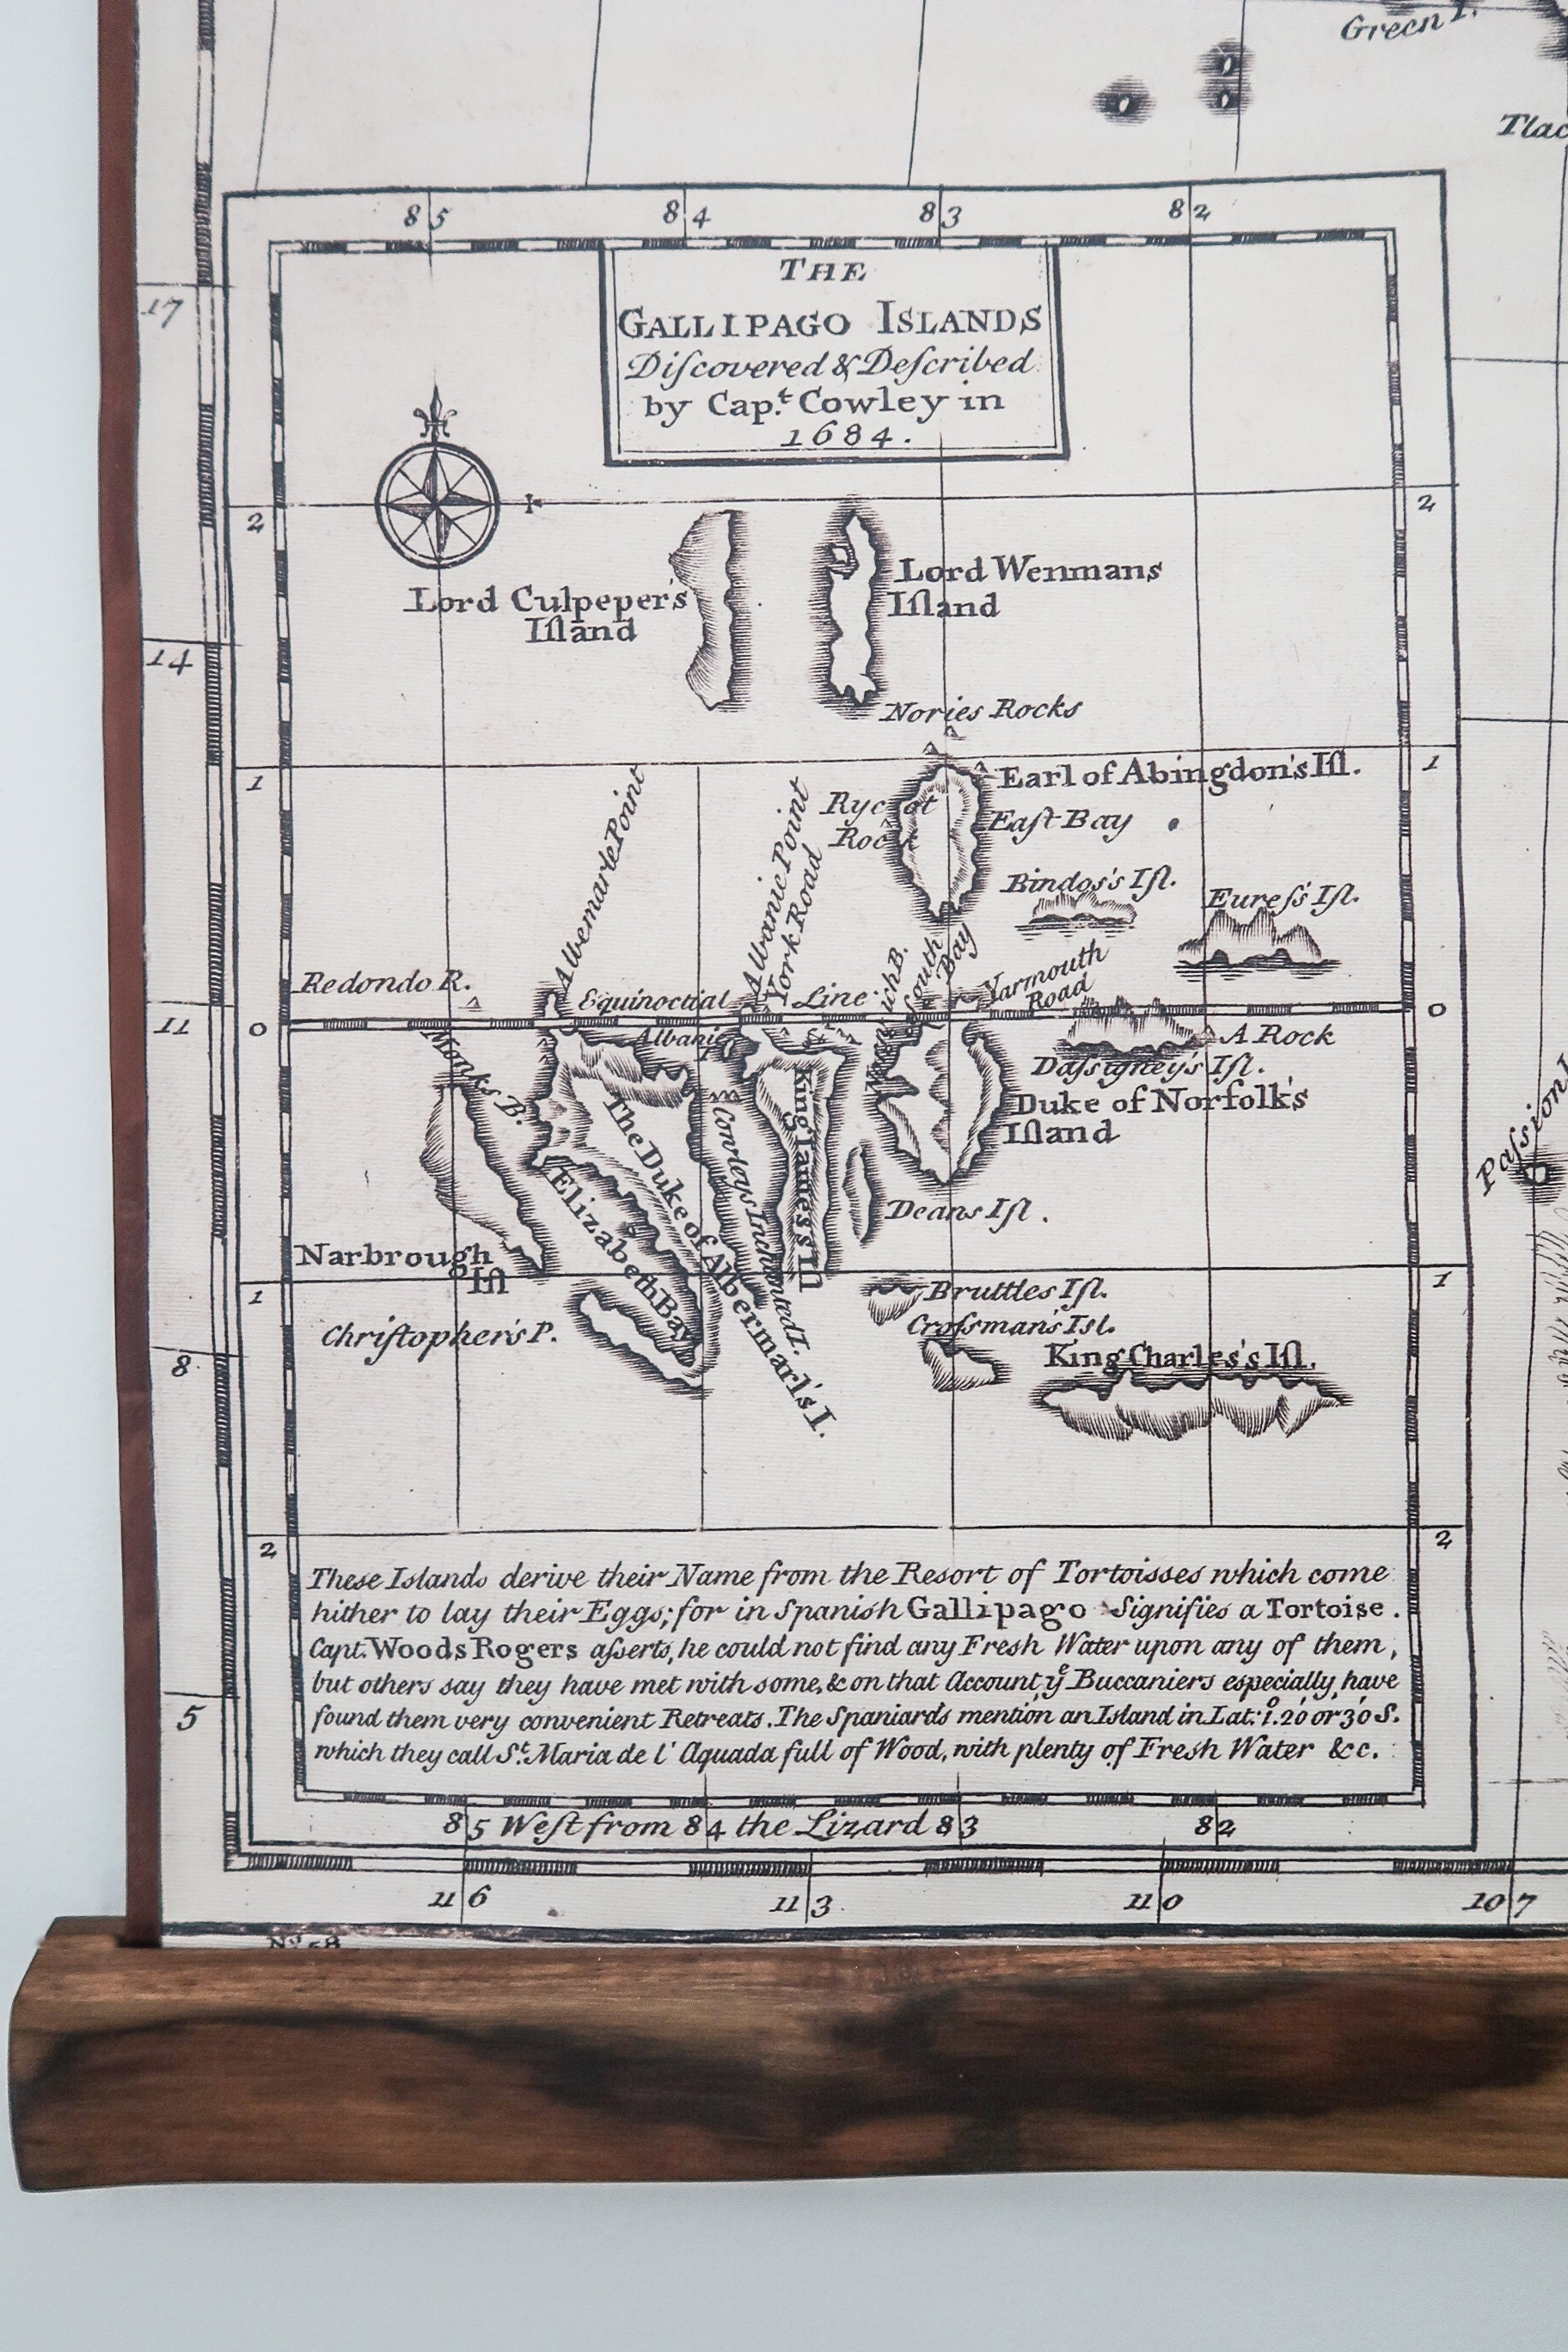 Green I.
Tlac
17
14
11
8
5
85 84 83 82
THE
GALLIPAGO ISLANDS
Diſcovered & Deſcribed
by Capt. Cowley in
1684.
2 2
Lord Culpeper's
Iſland
Lord Wenmans
Iſland
Nories Rocks
1 1
Earl of Abingdon's Iſl.
Albemarle Point
Albanic Point
York Road
Rycot
Rock
Eaſt Bay
Bindos's Iſl.
Eureſs Iſl.
South
Bay
Yarmouth
Road
Redondo R.
Equinoctial Line
0 0
Albanie
A Rock
Daſsigney's Iſl.
Monks B.
Duke of Norfolk's
Iſland
The Duke of Albermarl's I.
Cowleys Inchanted I.
King James's Iſl
Elizabeth Bay
Deans Iſl.
Paſsion I
Narbrough
Iſl
1 1
Bruttles Iſl.
Croſsman's Isl.
Chriſtopher's P.
King Charles's Iſl.
2 2
These Islands derive their Name from the Resort of Tortoisses which come
hither to lay their Eggs; for in Spanish Gallipago Signifies a Tortoise.
Capt. Woods Rogers aſserts, he could not find any Fresh Water upon any of them,
but others say they have met with some, & on that Account ye Buccaniers especially, have
found them very convenient Retreats. The Spaniards mention an Island in Lat: 1°. 20' or 30' S.
which they call St. Maria de l' Aquada full of Wood, with plenty of Fresh Water &c.
85 Weſt from 84 the Lizard 83 82
116 113 110 107
No. 58